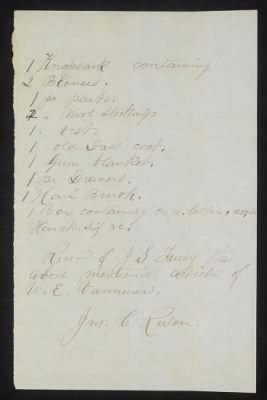 1 Knapsack containing
2 Blouses.
1 pr pants.
2 " Wool Stockings
1. Vest.
1. old Dress coat.
1 Gum blanket.
1 pr Drawers.
1 Hair Brush.
1 Box containing cup,
Handk'chf &c.
Rec'd of J S the
above mentioned articles of
W. E. Vanneman.
Jno. C Rulon.